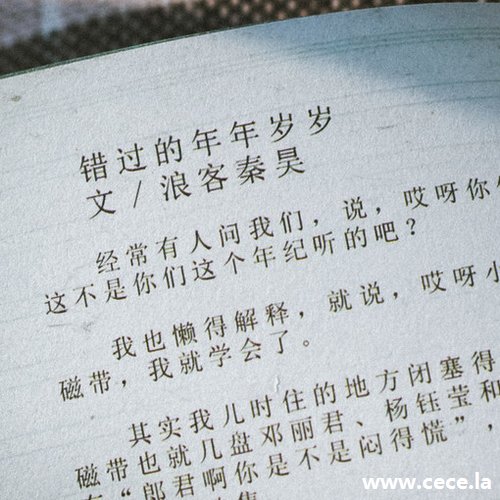 错过的年年岁岁
文/浪客秦昊
经常有人问我们，说，哎呀你
这不是你们这个年纪听的吧？
我也懒得解释，就说，哎呀小
磁带，我就学会了。
其实我儿时住的地方闭塞得
磁带也就几盘邓丽君、杨钰莹和
“郎君啊你是不是闷得慌”，
www.cece.la